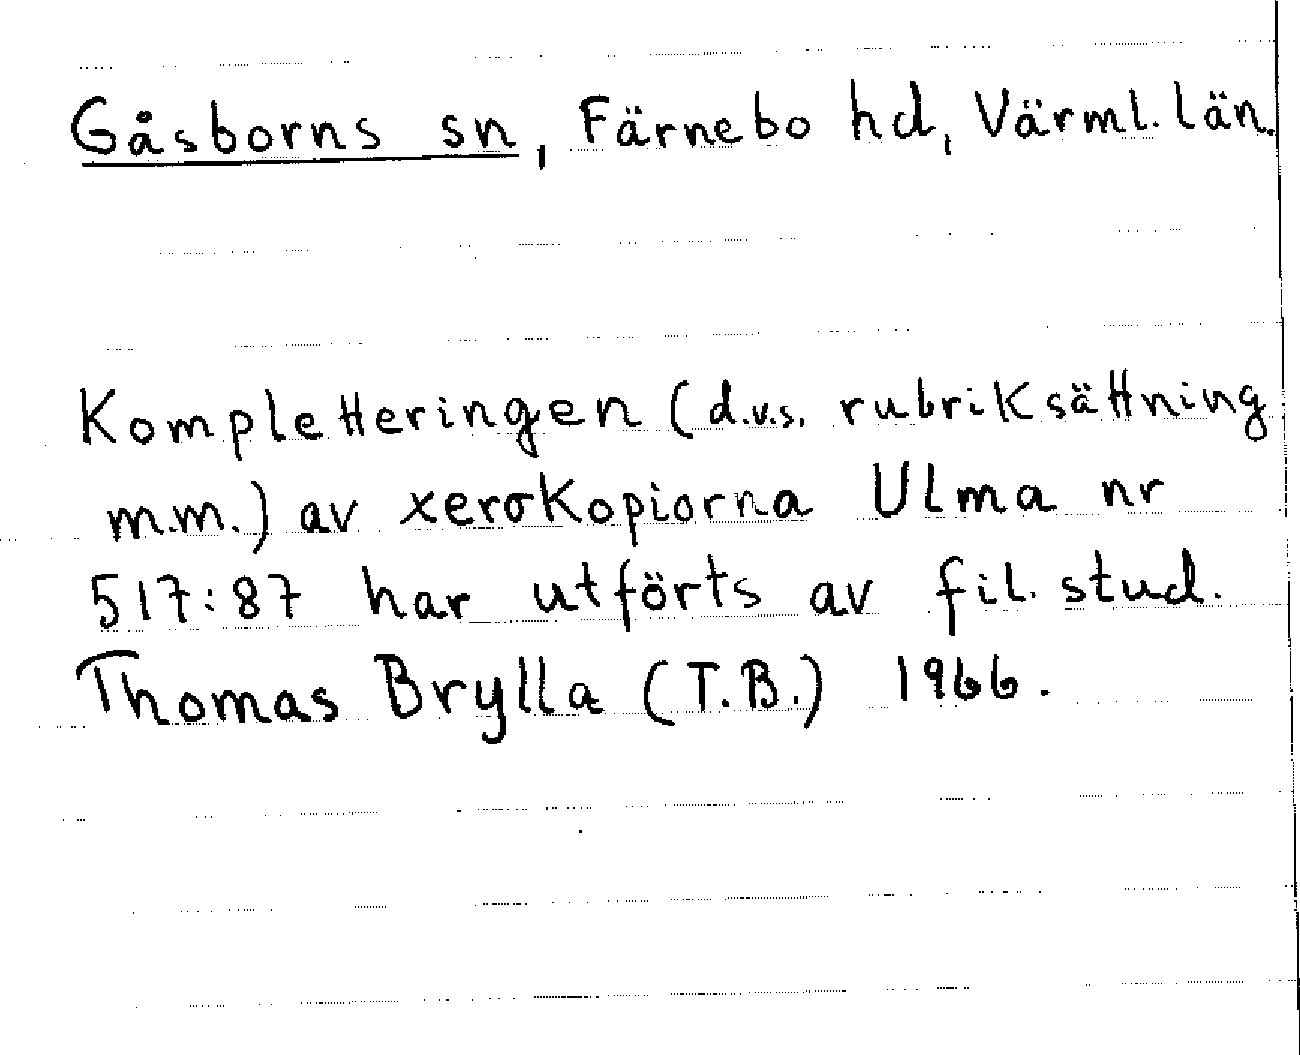 Gåsborns sn, Färnebo hd, Värml. län.
Kompletteringen (d.v.s. rubriksättning
m.m.) av xerokopiorna Ulma nr
517:87 har utförts av fil. stud.
Thomas Brylla (T.B.) 1966.